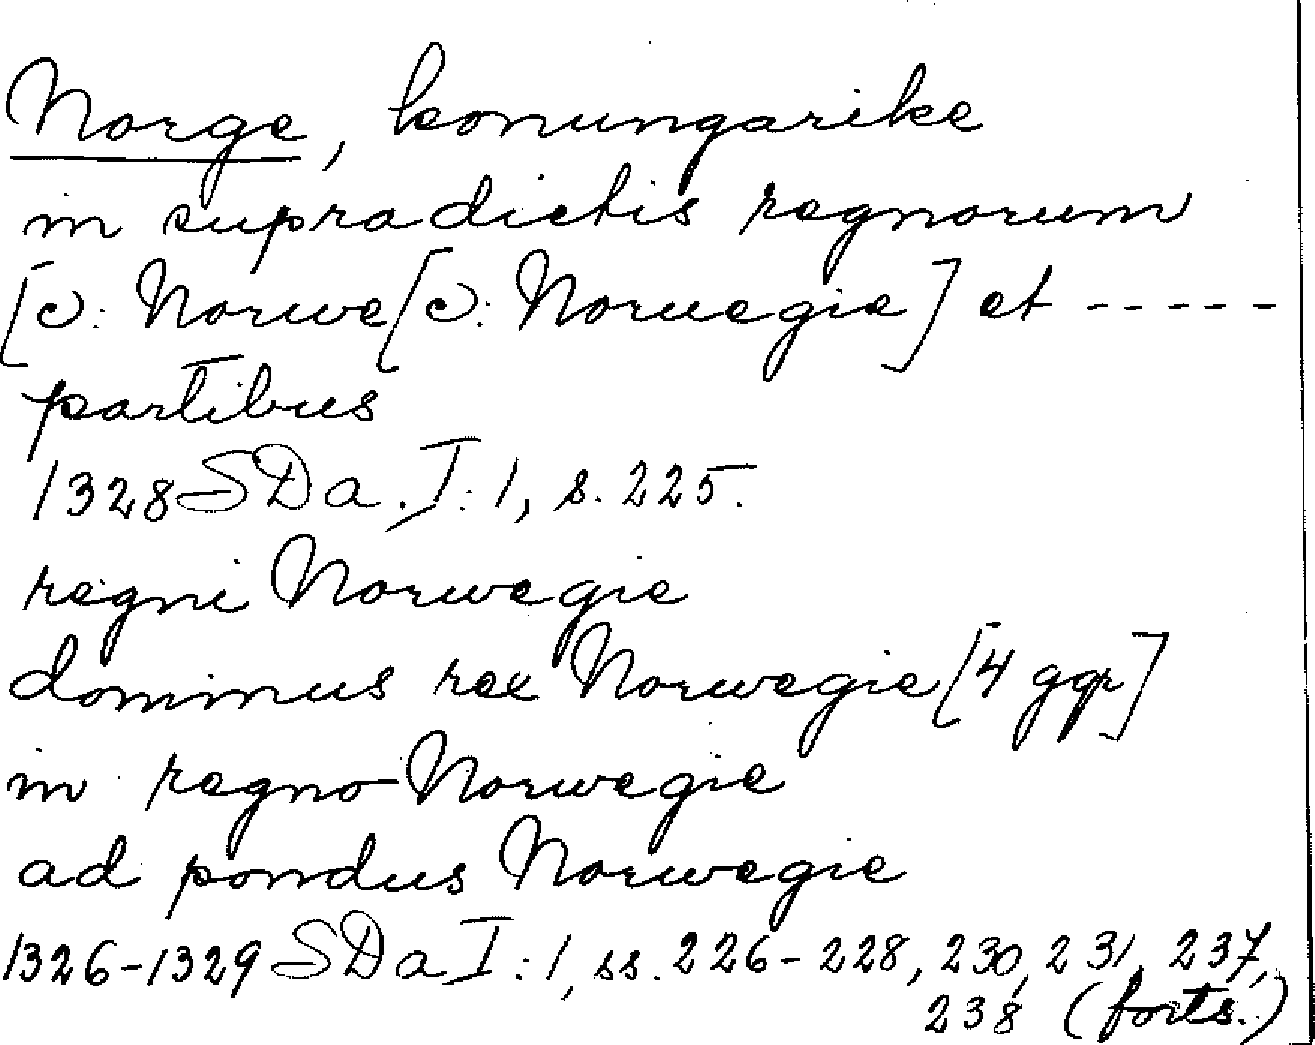 Norge, konungarike
in supradictis regnorum
[ɔ: Norwe[ɔ: Noruegie] et -----
partibus
1328 SDa. I: 1, s. 225.
regni Norwegie
dominus rex Norwegie [4 ggr]
in regno Norwegie
ad pondus Norwegie
1326-1329 SDa I: 1, ss. 226-228, 230, 231, 237,
238 (forts.)